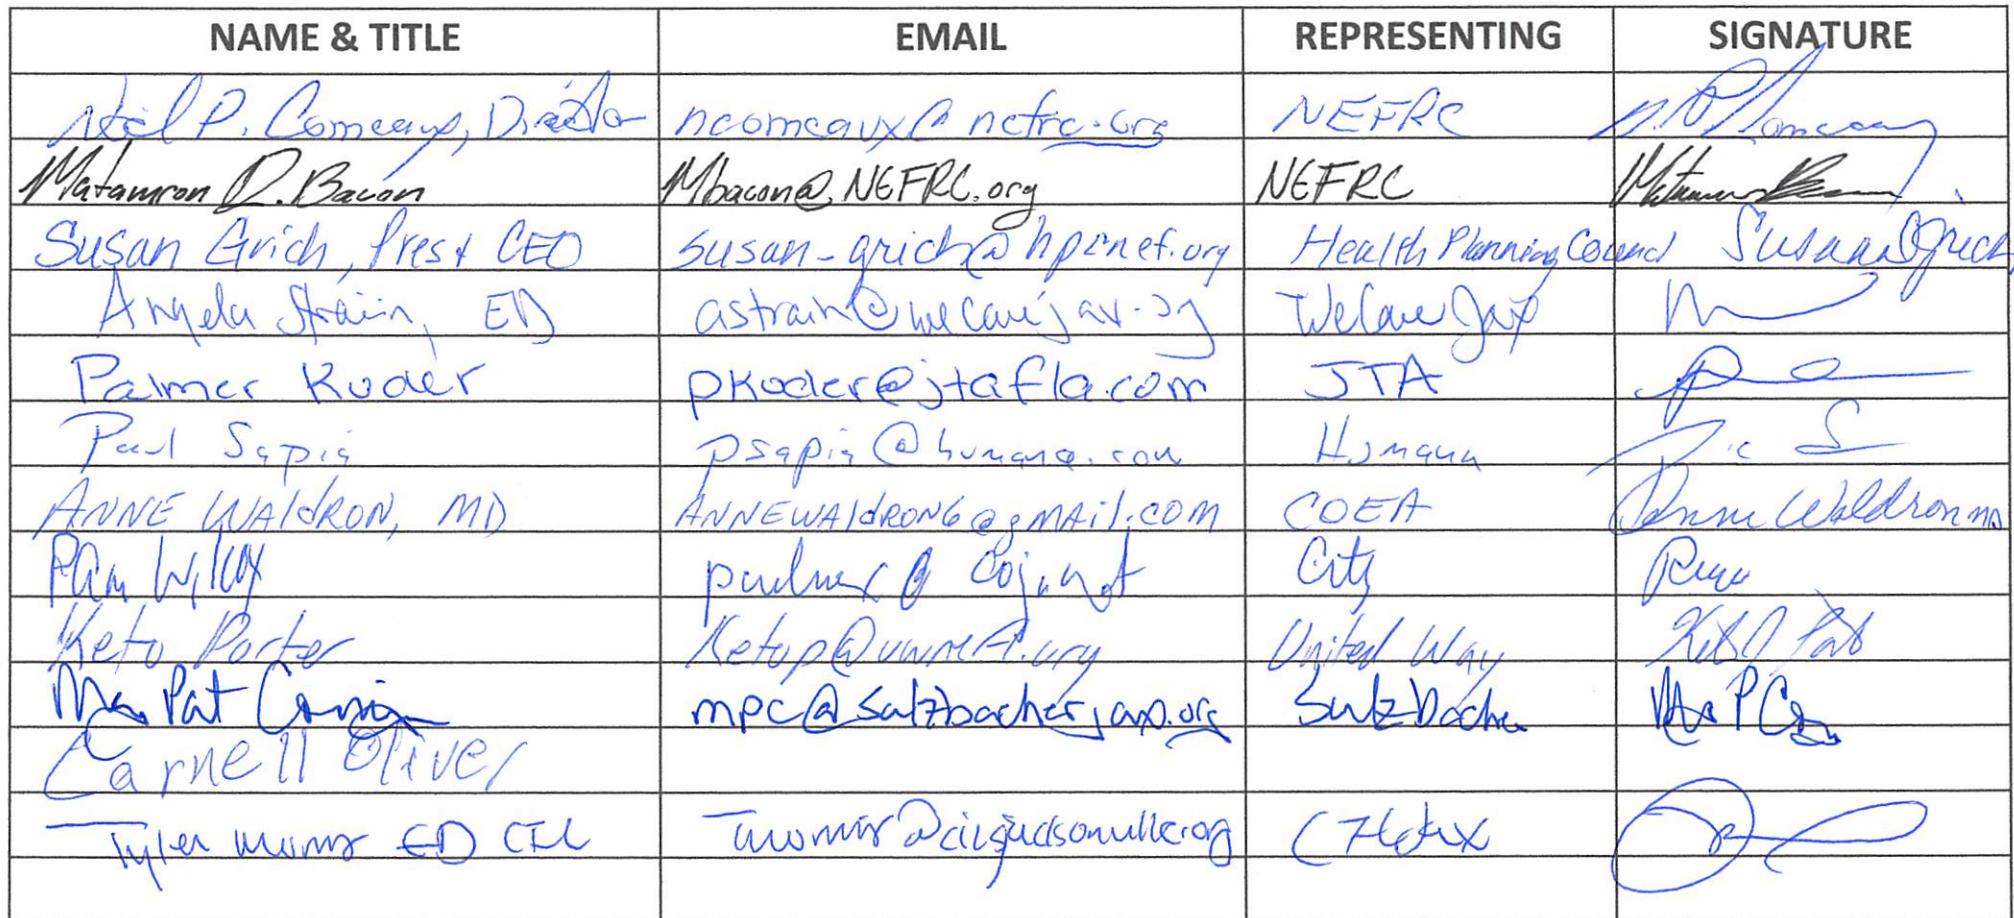 NAME & TITLE EMAIL REPRESENTING SIGNATURE
P. Comeaux, Director ncomeaux@nefrc.org NEFRC
Matamron D. Bacon Mbacon@NEFRC.org NEFRC
Susan Grich, Pres + CEO susan_grich@hpcnef.org Health Planning Council Susan Grich
Angela Strain, ED astrain@wecarejax.org WeCare Jax
Palmer Kuder pkuder@jtafla.com JTA
Paul Sapia psapia@humana.com Humana
ANNE WAldRON, MD ANNEWAldRON6@gMAil.COM COEA Anne Waldron MD
Pam Wilcox City
Keto Porter Ketop@uwnefl.org United Way
Pat mpc@sulzbacherjax.org Sulzbacher
Carnell Oliver
Tyler ED CIL